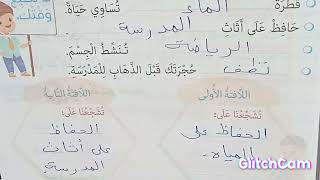 وَقْتَكَ.
قَطْرَةُ الماء تُسَاوِي حَيَاةً.
حَافِظْ عَلَى أَثَاثِ المدرسة
الرياضة تُنَشِّطُ الْجِسْمَ.
نظف حُجْرَتَكَ قَبْلَ الذَّهَابِ لِلْمَدْرَسَةِ.
اللَّافِتَةُ الْأُولَى
تُشَجِّعُنَا عَلَى:
الحفاظ على
المياه.
اللَّافِتَةُ الثَّانِيَةُ
تُشَجِّعُنَا عَلَى:
الحفاظ
على أثاث
المدرسة
GlitchCam